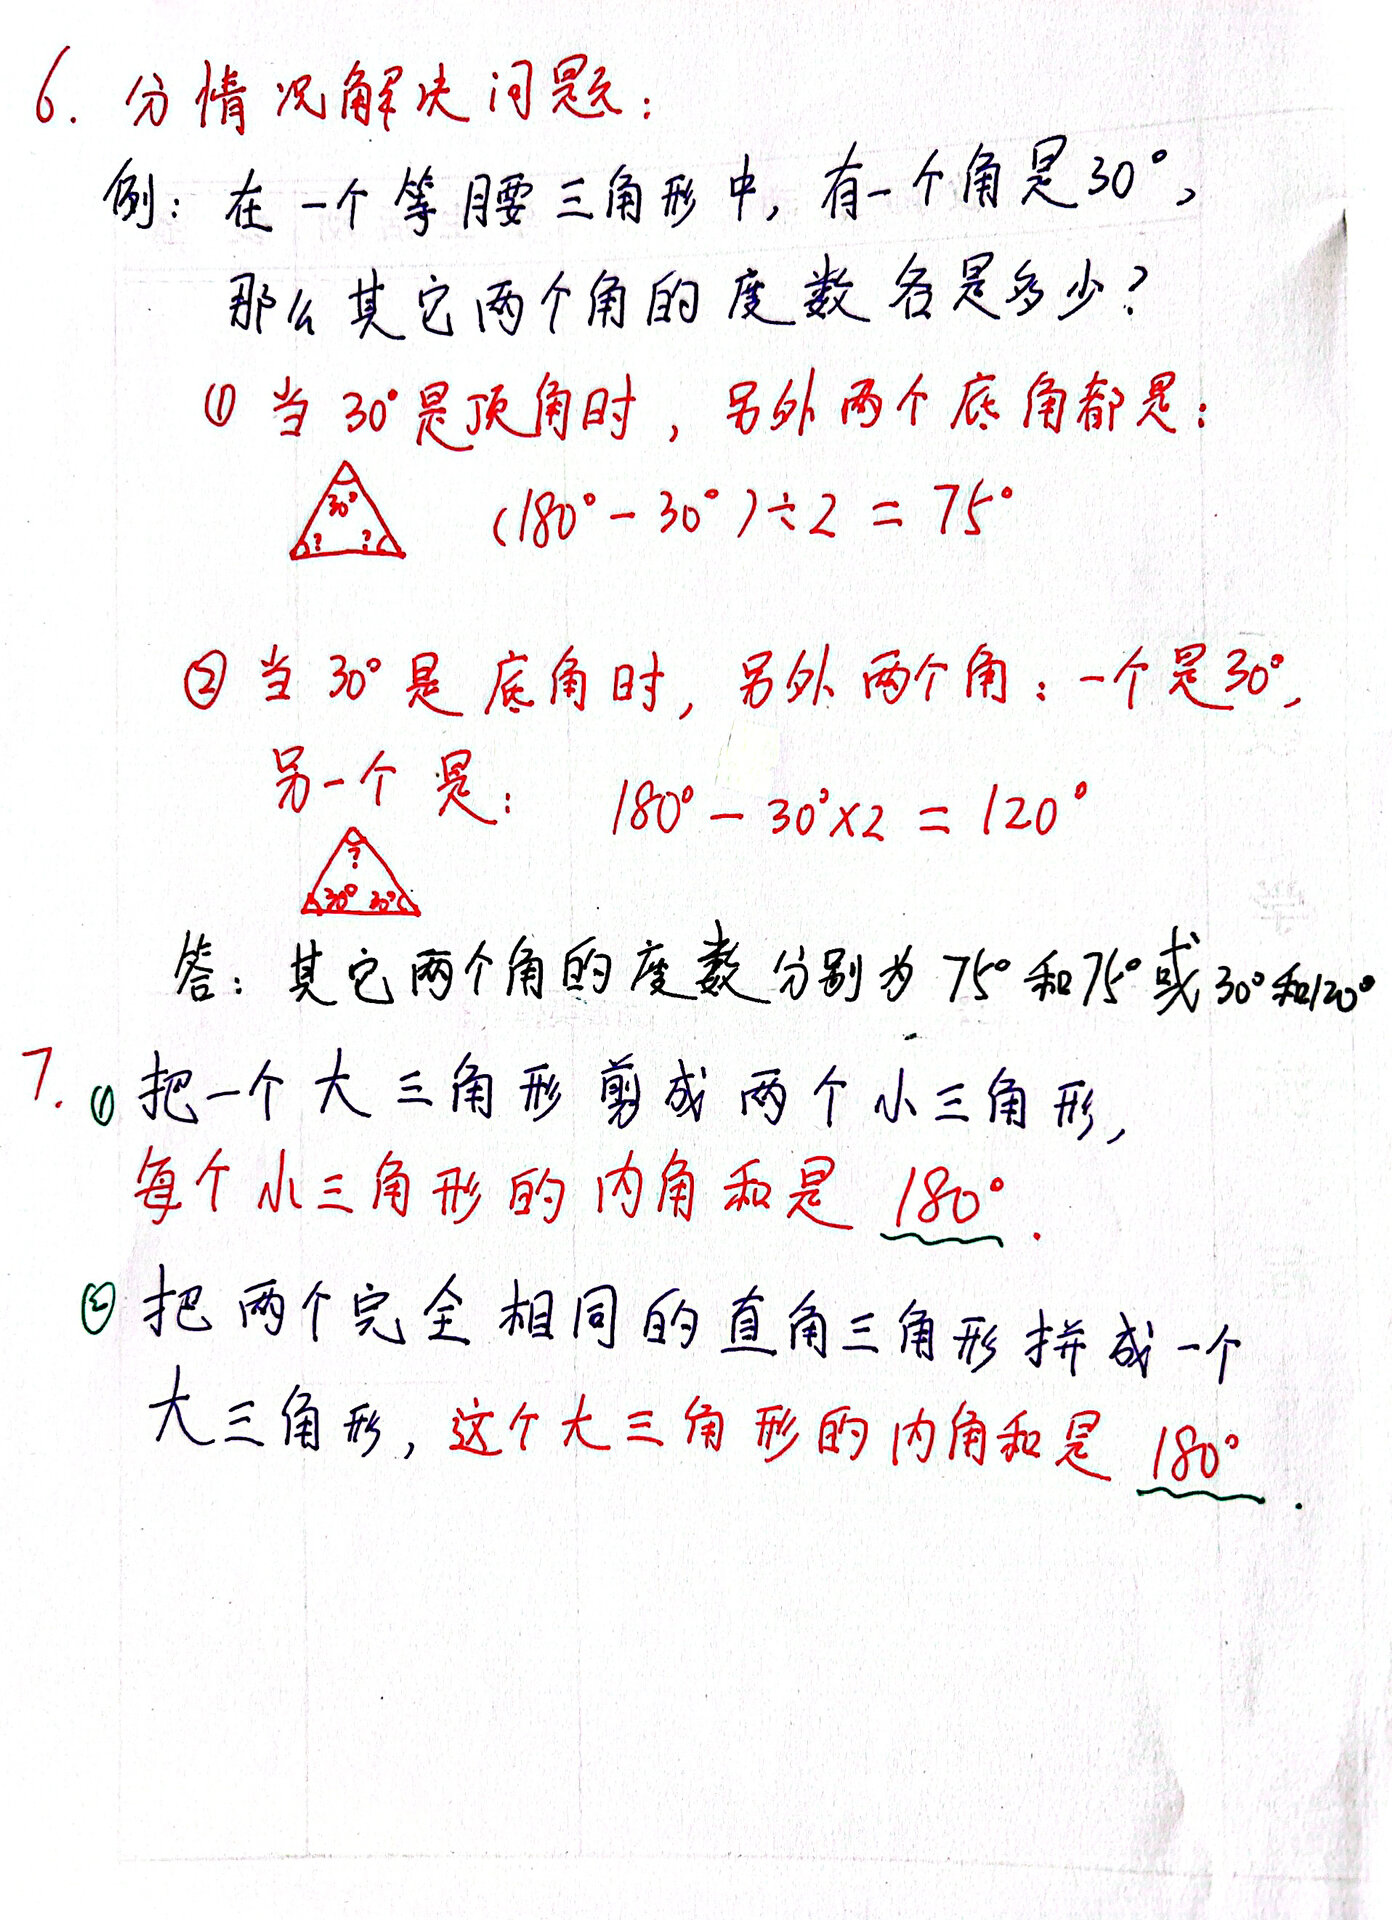 6. 分情况解决问题：
例：在一个等腰三角形中，有一个角是30°，
那么其它两个角的度数各是多少？
① 当30°是顶角时，另外两个底角都是：
30°
? ?
(180°－30°)÷2＝75°
② 当30°是底角时，另外两个角：一个是30°，
另一个是： 180°－30°×2＝120°
?
30° 30°
答：其它两个角的度数分别为75°和75°或30°和120°
7. ① 把一个大三角形剪成两个小三角形，
每个小三角形的内角和是 180°.
② 把两个完全相同的直角三角形拼成一个
大三角形，这个大三角形的内角和是 180°.